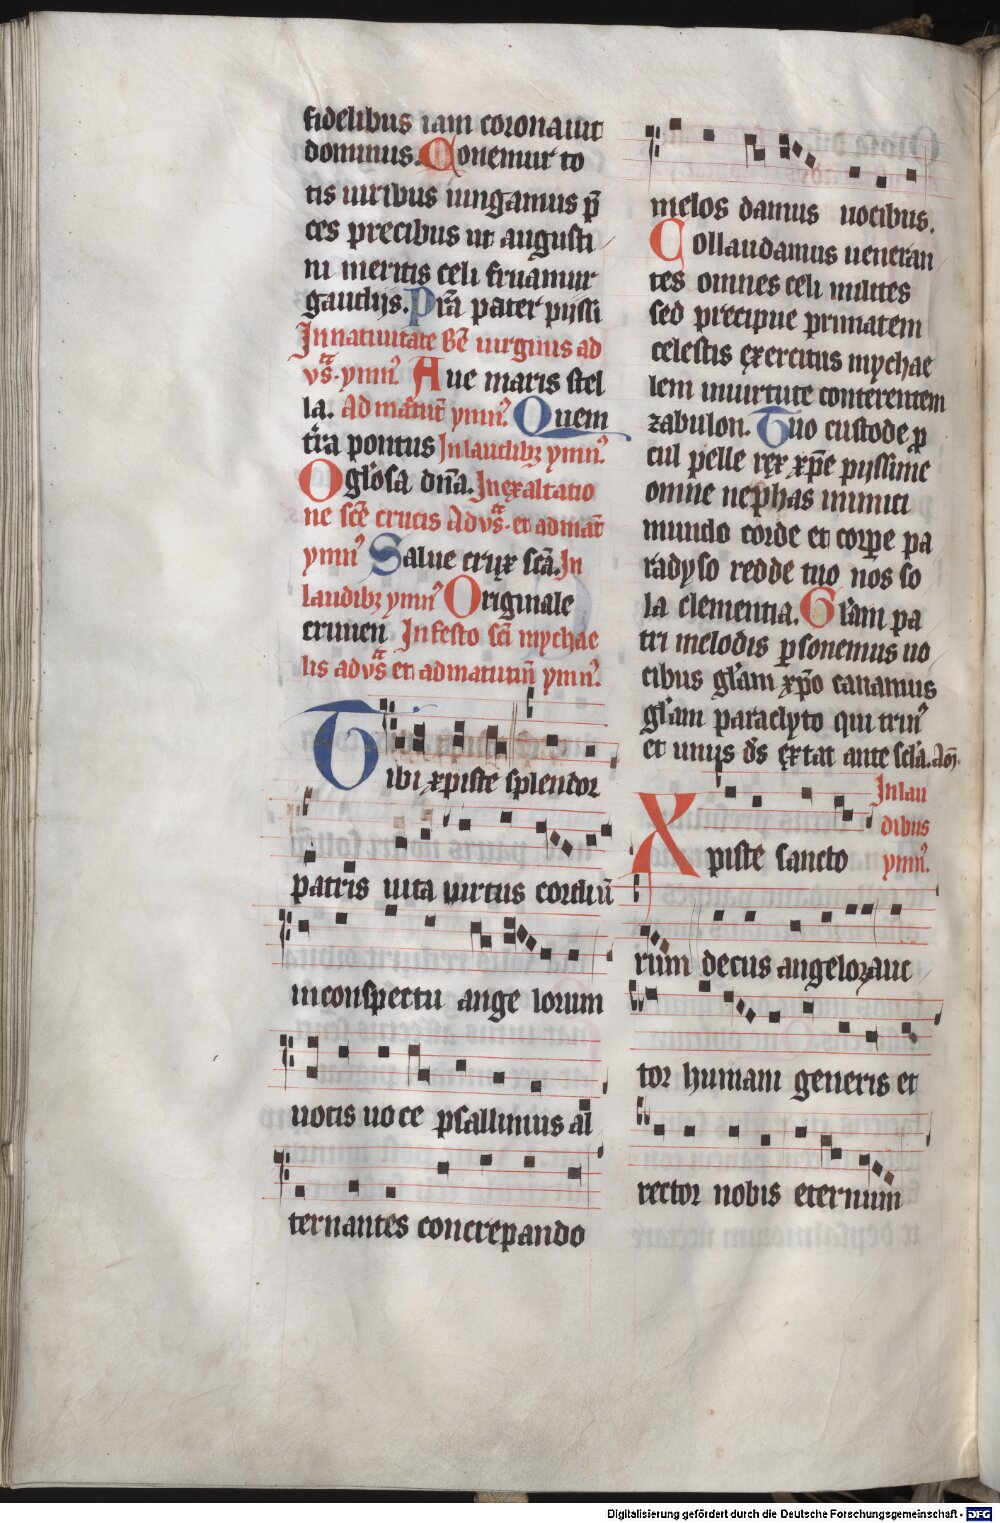 fidelibus iam coronauit
dominus. Conemur to
tis uiribus iungamus p̄
ces precibus ut augusti
ni meritis celi fruamur
gaudijs. Prā pater pijssi
In natiuitate Bē uirginis ad
vs̄. ymn̄. Aue maris stel
la. Ad matut̄ ymn̄. Quem
tr̄ra pontus In laudibꝫ ymn̄.
O gl'osa dn̄a. In exaltatio
ne scē crucis Ad vs̄. et ad mat̄
ymn̄ Salue crux scā. In
laudibꝫ ymn̄ Originale
crimen In festo scī mychae
lis ad vs̄ et ad matutin̄ ymn̄.
Tibi xpiste splendor
patris uita uirtus cordiū
in conspectu ange lorum
uotis uo ce psallimus al
ternantes concrepando
melos damus uocibus.
Collaudamus ueneran
tes omnes celi milites
sed precipue primatem
celestis exercitus mychae
lem in uirtute conterentem
zabulon. Tuo custode p
cul pelle rex xp̄e pijssime
omne nephas inimici
mundo corde et corpe pa
radyso redde tuo nos so
la clementia. Gl'am pa
tri melodis psonemus uo
cibus gl'am xp̄o canamus
gl'am paraclyto qui trin'
et unus ds̄ extat ante scl'a. Am̄.
In lau
dibus
ymn̄.
Xpiste sancto
rum decus angeloꝝ auc
tor humani generis et
rector nobis eternum
Digitalisierung gefördert durch die Deutsche Forschungsgemeinschaft - DFG